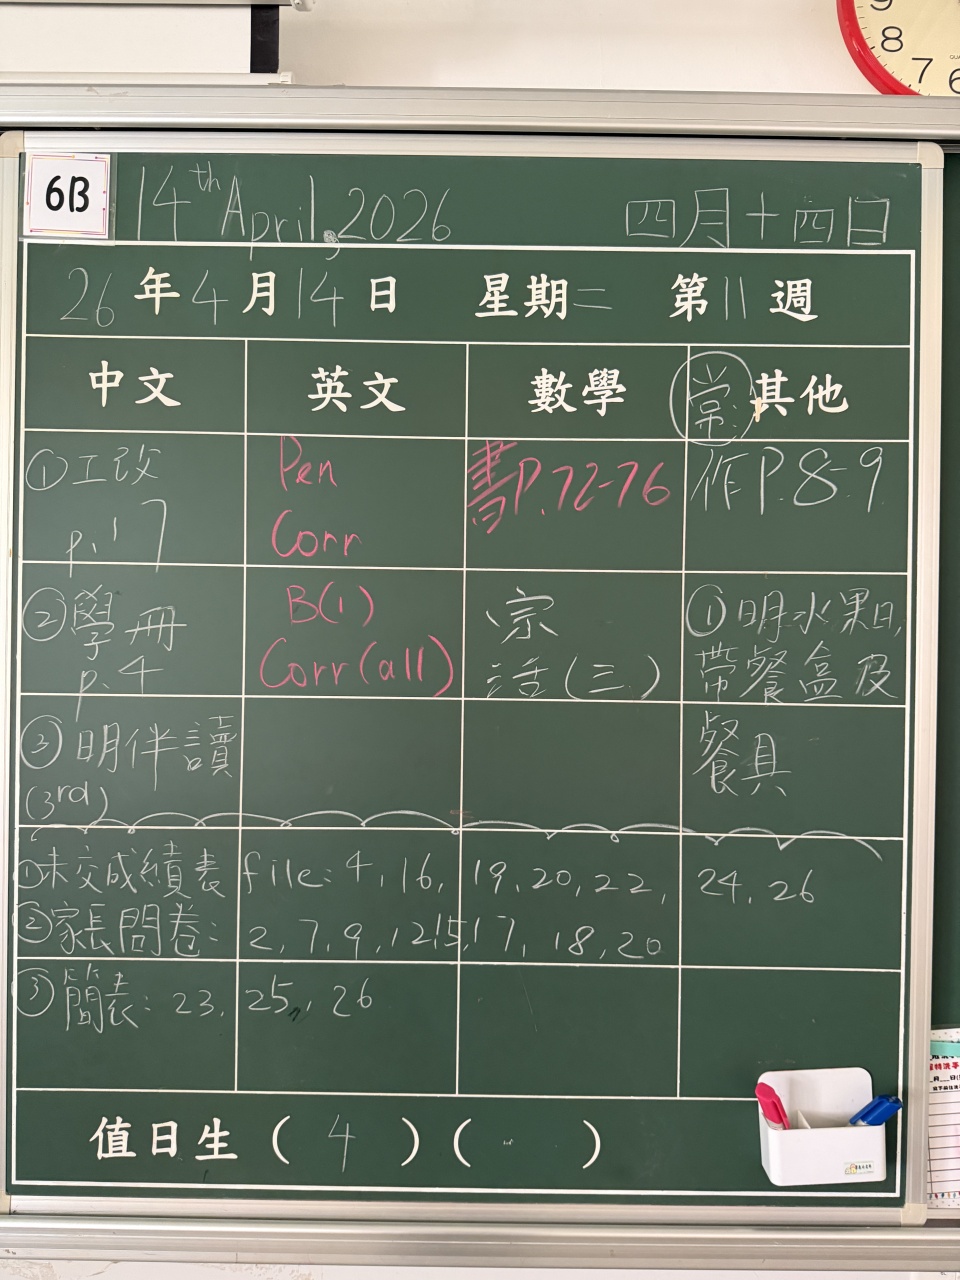 9
8
7
6
6B
14th April, 2026 四月十四日
26年4月14日 星期二 第11週
中文 英文 數學 常: 其他
①工改 Pen 書P.72-76 作P.8-9
p.17 Corr
②學冊 B(1) 宗 ①明水果日,
p.4 Corr(all) 活(三) 帶餐盒及
③明伴讀 餐具
(3rd)
①未交成績表 file: 4, 16, 19, 20, 22, 24, 26
②家長問卷: 2, 7, 9, 12, 15, 17, 18, 20
③簡表: 23, 25, 26
值日生 ( 4 ) ( )